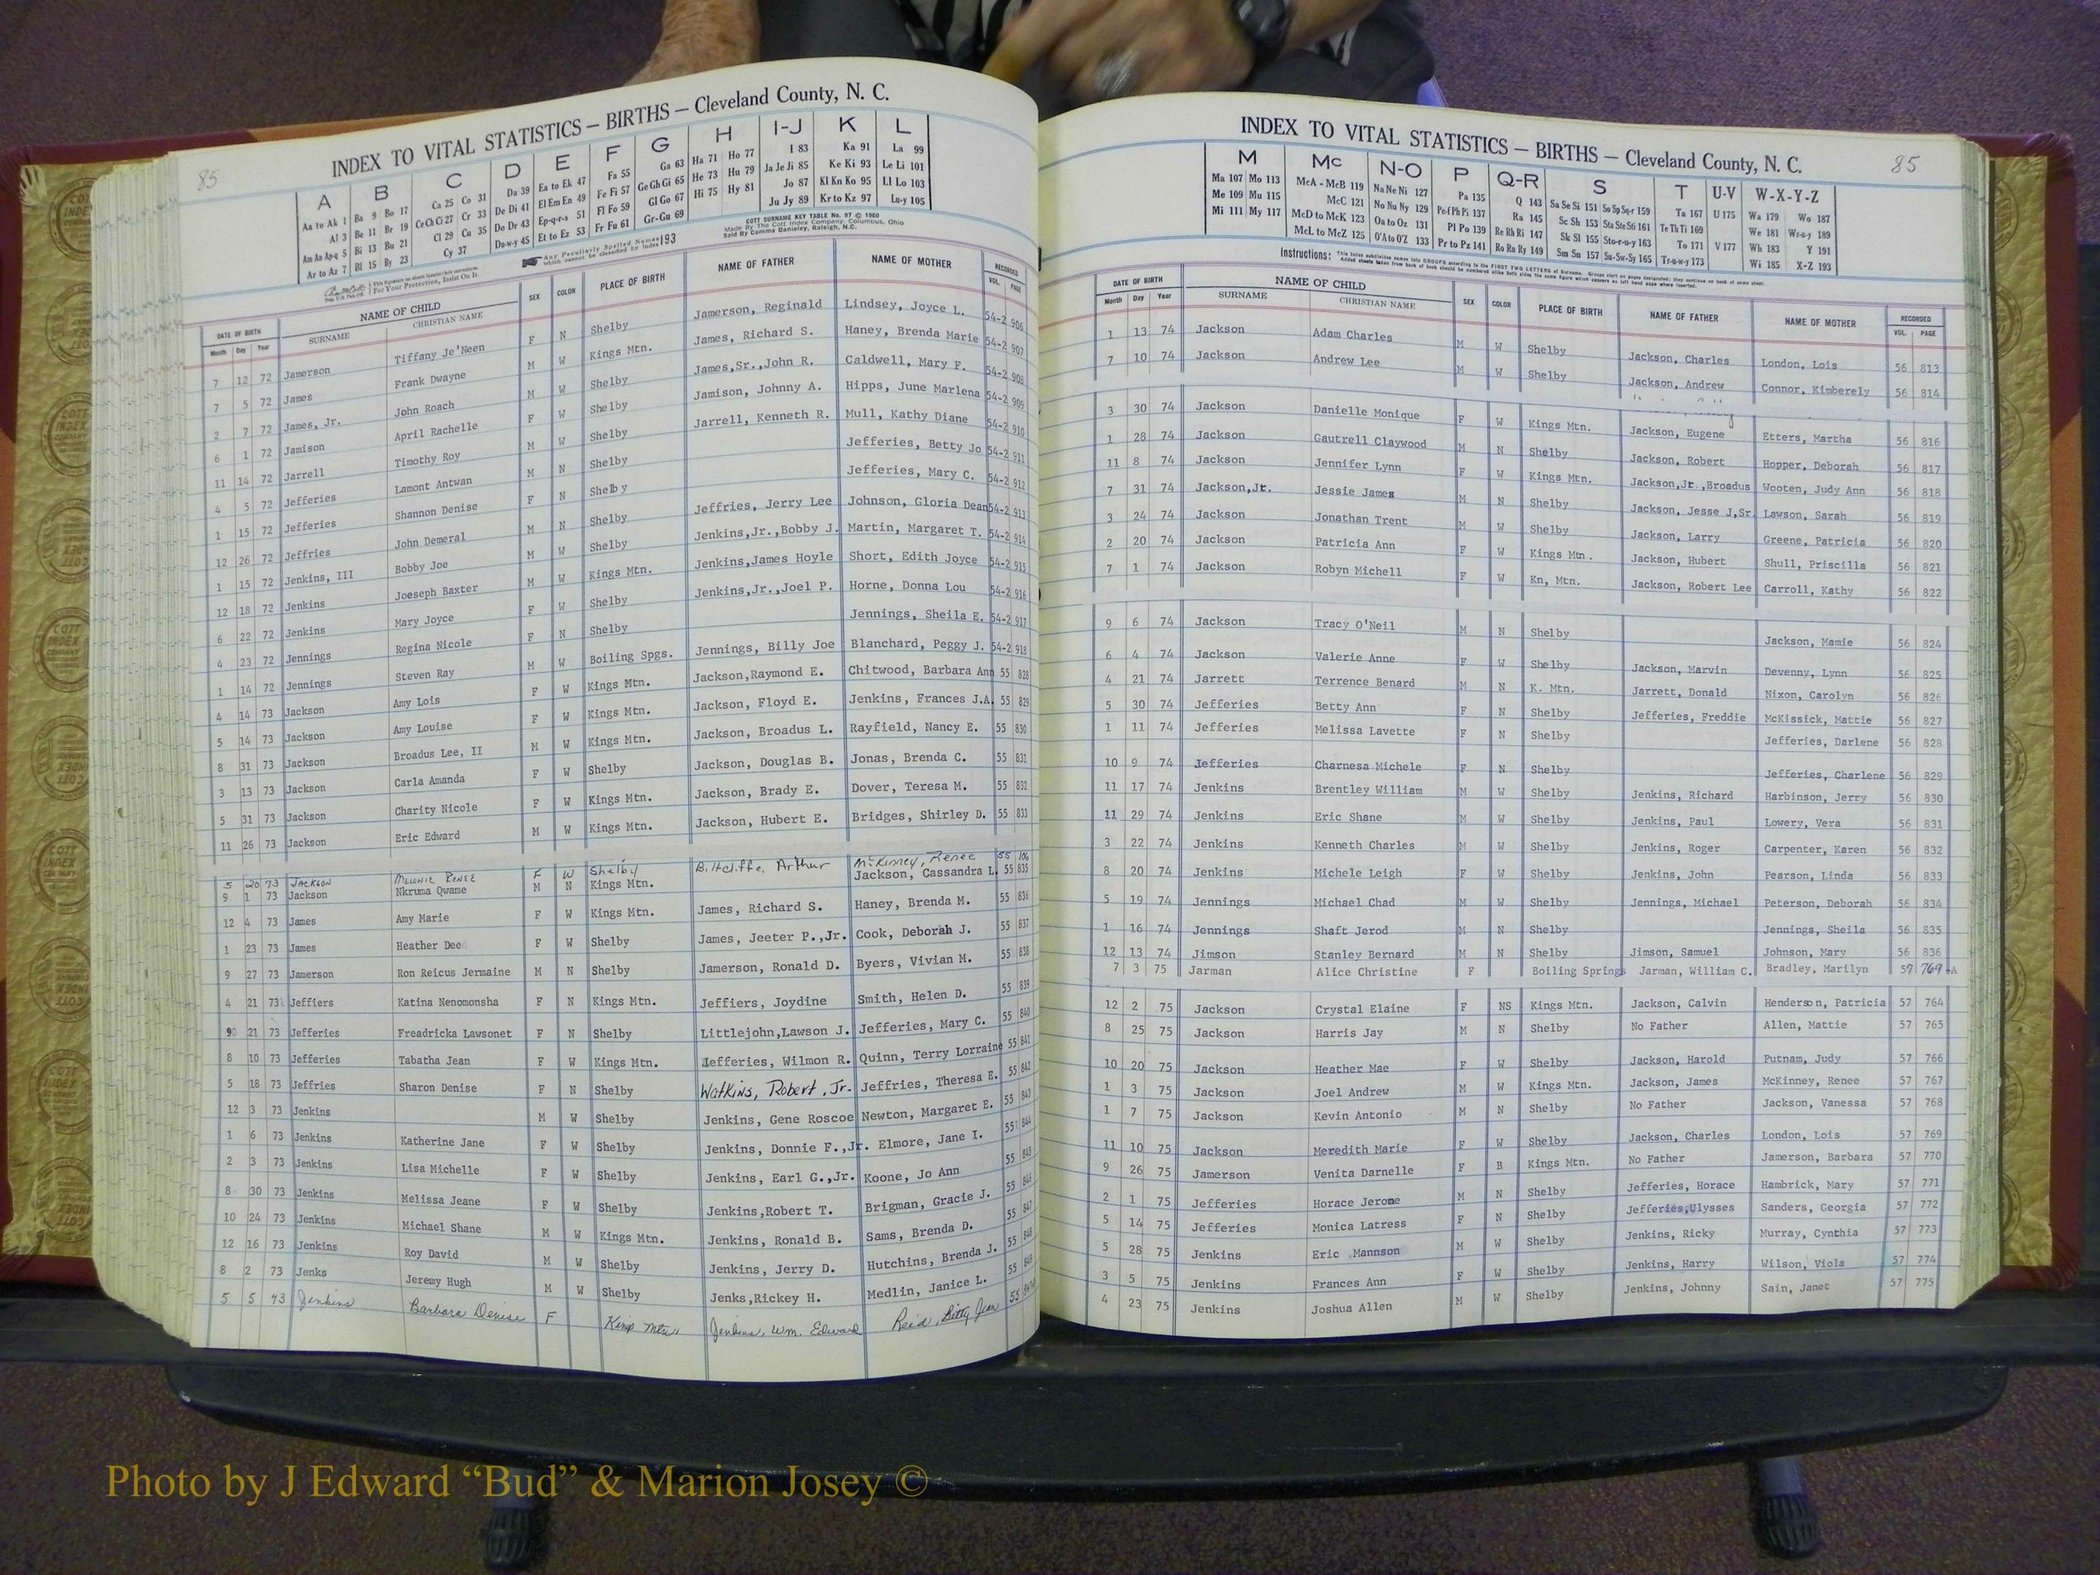 85
INDEX TO VITAL STATISTICS — BIRTHS — Cleveland County, N. C.
A B C D E F G H I-J K L
Aa to Ak 1 Ba 9 Bo 17 Ca 25 Co 31 Da 39 Ea to Ek 47 Fa 55 Ga 63 Ha 71 Ho 77 I 83 Ka 91 La 99
Al 3 Be 11 Br 19 Ce Ch Ci 27 Cr 33 De Di 41 El Em En 49 Fe Fi 57 Ge Gh Gi 65 He 73 Hu 79 Ja Je Ji 85 Ke Ki 93 Le Li 101
Am An Ap-q 5 Bi 13 Bu 21 Cl 29 Cu 35 Do Dr 43 Ep-q-r-s 51 Fl Fo 59 Gl Go 67 Hi 75 Hy 81 Jo 87 Kl Kn Ko 95 Ll Lo 103
Ar to Az 7 Bl 15 By 23 Cy 37 Du-w-y 45 Et to Ez 53 Fr Fu 61 Gr-Gu 69 Ju Jy 89 Kr to Kz 97 Lu-y 105
For Your Protection, Insist On It.
Any Peculiarly Spelled Names which cannot be classified by index 193
COTT SURNAME KEY TABLE No. 97 © 1960
Made By The Cott Index Company, Columbus, Ohio
Sold By Comma Danieley, Raleigh, N.C.
DATE OF BIRTH NAME OF CHILD SEX COLOR PLACE OF BIRTH NAME OF FATHER NAME OF MOTHER RECORDED
Month Day Year SURNAME CHRISTIAN NAME VOL. PAGE
7 12 72 Jamerson Tiffany Je'Neen F N Shelby Jamerson, Reginald Lindsey, Joyce L. 54-2 906
7 5 72 James Frank Dwayne M W Kings Mtn. James, Richard S. Haney, Brenda Marie 54-2 907
2 7 72 James, Jr. John Roach M W Shelby James,Sr.,John R. Caldwell, Mary F. 54-2 908
6 1 72 Jamison April Rachelle F W Shelby Jamison, Johnny A. Hipps, June Marlena 54-2 909
11 14 72 Jarrell Timothy Roy M W Shelby Jarrell, Kenneth R. Mull, Kathy Diane 54-2 910
4 5 72 Jefferies Lamont Antwan M N Shelby Jefferies, Betty Jo 54-2 911
1 15 72 Jefferies Shannon Denise F N Shelby Jefferies, Mary C. 54-2 912
12 26 72 Jeffries John Demeral M N Shelby Jeffries, Jerry Lee Johnson, Gloria Dean 54-2 913
1 15 72 Jenkins, III Bobby Joe M W Shelby Jenkins,Jr.,Bobby J. Martin, Margaret T. 54-2 914
12 18 72 Jenkins Joeseph Baxter M W Kings Mtn. Jenkins,James Hoyle Short, Edith Joyce 54-2 915
6 22 72 Jenkins Mary Joyce F W Shelby Jenkins,Jr.,Joel P. Horne, Donna Lou 54-2 916
4 23 72 Jennings Regina Nicole F N Shelby Jennings, Sheila E. 54-2 917
1 14 72 Jennings Steven Ray M W Boiling Spgs. Jennings, Billy Joe Blanchard, Peggy J. 54-2 918
4 14 73 Jackson Amy Lois F W Kings Mtn. Jackson,Raymond E. Chitwood, Barbara Ann 55 828
5 14 73 Jackson Amy Louise F W Kings Mtn. Jackson, Floyd E. Jenkins, Frances J.A. 55 829
8 31 73 Jackson Broadus Lee, II M W Kings Mtn. Jackson, Broadus L. Rayfield, Nancy E. 55 830
3 13 73 Jackson Carla Amanda F W Shelby Jackson, Douglas B. Jonas, Brenda C. 55 831
5 31 73 Jackson Charity Nicole F W Kings Mtn. Jackson, Brady E. Dover, Teresa M. 55 832
11 26 73 Jackson Eric Edward M W Kings Mtn. Jackson, Hubert E. Bridges, Shirley D. 55 833
5 20 73 JACKSON MELONIE RENEE F W Shelby Biltcliffe, Arthur McKinney, Renee 55 106
9 1 73 Jackson Nkruma Qwame M N Kings Mtn. Jackson, Cassandra L. 55 835
12 4 73 James Amy Marie F W Kings Mtn. James, Richard S. Haney, Brenda M. 55 836
1 23 73 James Heather Dee F W Shelby James, Jeeter P.,Jr. Cook, Deborah J. 55 837
9 27 73 Jamerson Ron Reicus Jermaine M N Shelby Jamerson, Ronald D. Byers, Vivian M. 55 838
4 21 73 Jeffiers Katina Nenomonsha F N Kings Mtn. Jeffiers, Joydine Smith, Helen D. 55 839
9 21 73 Jefferies Freadricka Lawsonet F N Shelby Littlejohn,Lawson J. Jefferies, Mary C. 55 840
8 10 73 Jefferies Tabatha Jean F W Kings Mtn. Jefferies, Wilmon R. Quinn, Terry Lorraine 55 841
5 18 73 Jeffries Sharon Denise F N Shelby Watkins, Robert, Jr. Jeffries, Theresa E. 55 842
12 3 73 Jenkins M W Shelby Jenkins, Gene Roscoe Newton, Margaret E. 55 843
1 6 73 Jenkins Katherine Jane F W Shelby Jenkins, Donnie F.,Jr. Elmore, Jane I. 55 844
2 3 73 Jenkins Lisa Michelle F W Shelby Jenkins, Earl G.,Jr. Koone, Jo Ann 55 845
8 30 73 Jenkins Melissa Jeane F W Shelby Jenkins,Robert T. Brigman, Gracie J. 55 846
10 24 73 Jenkins Michael Shane M W Kings Mtn. Jenkins, Ronald B. Sams, Brenda D. 55 847
12 16 73 Jenkins Roy David M W Shelby Jenkins, Jerry D. Hutchins, Brenda J. 55 848
8 2 73 Jenks Jeremy Hugh M W Shelby Jenks,Rickey H. Medlin, Janice L. 55 849
5 5 43 Jenkins Barbara Denise F Kings Mtn. Jenkins, Wm. Edward Reid, Betty Jean 55
85
INDEX TO VITAL STATISTICS — BIRTHS — Cleveland County, N. C.
M Mc N-O P Q-R S T U-V W-X-Y-Z
Ma 107 Mo 113 McA - McB 119 Na Ne Ni 127 Pa 135 Q 143 Sa Se Si 151 So Sp Sq-r 159 Ta 167 U 175 Wa 179 Wo 187
Me 109 Mu 115 McC 121 No Nu Ny 129 Pe-f Ph Pi 137 Ra 145 Sc Sh 153 Sta Ste Sti 161 Te Th Ti 169 We 181 Wr-u-y 189
Mi 111 My 117 McD to McK 123 Oa to Oz 131 Pl Po 139 Re Rh Ri 147 Sk Sl 155 Sto-r-u-y 163 To 171 V 177 Wh 183 Y 191
McL to McZ 125 O'A to O'Z 133 Pr to Pz 141 Ro Ru Ry 149 Sm Sn 157 Su-Sw-Sy 165 Tr-u-w-y 173 Wi 185 X-Z 193
Instructions: This index subdivides names into GROUPS according to the FIRST TWO LETTERS of Surname.
DATE OF BIRTH NAME OF CHILD SEX COLOR PLACE OF BIRTH NAME OF FATHER NAME OF MOTHER RECORDED
Month Day Year SURNAME CHRISTIAN NAME VOL. PAGE
1 13 74 Jackson Adam Charles M W Shelby Jackson, Charles London, Lois 56 813
7 10 74 Jackson Andrew Lee M W Shelby Jackson, Andrew Connor, Kimberely 56 814
3 30 74 Jackson Danielle Monique F W Kings Mtn. Jackson, Eugene Etters, Martha 56 816
1 28 74 Jackson Gautrell Claywood M N Shelby Jackson, Robert Hopper, Deborah 56 817
11 8 74 Jackson Jennifer Lynn F W Kings Mtn. Jackson,Jr.,Broadus Wooten, Judy Ann 56 818
7 31 74 Jackson,Jr. Jessie James M N Shelby Jackson, Jesse J,Sr. Lawson, Sarah 56 819
3 24 74 Jackson Jonathan Trent M W Shelby Jackson, Larry Greene, Patricia 56 820
2 20 74 Jackson Patricia Ann F W Kings Mtn. Jackson, Hubert Shull, Priscilla 56 821
7 1 74 Jackson Robyn Michell F W Kn, Mtn. Jackson, Robert Lee Carroll, Kathy 56 822
9 6 74 Jackson Tracy O'Neil M N Shelby Jackson, Mamie 56 824
6 4 74 Jackson Valerie Anne F W Shelby Jackson, Marvin Devenny, Lynn 56 825
4 21 74 Jarrett Terrence Benard M N K. Mtn. Jarrett, Donald Nixon, Carolyn 56 826
5 30 74 Jefferies Betty Ann F N Shelby Jefferies, Freddie McKissick, Mattie 56 827
1 11 74 Jefferies Melissa Lavette F N Shelby Jefferies, Darlene 56 828
10 9 74 Jefferies Charnesa Michele F N Shelby Jefferies, Charlene 56 829
11 17 74 Jenkins Brentley William M W Shelby Jenkins, Richard Harbinson, Jerry 56 830
11 29 74 Jenkins Eric Shane M W Shelby Jenkins, Paul Lowery, Vera 56 831
3 22 74 Jenkins Kenneth Charles M W Shelby Jenkins, Roger Carpenter, Karen 56 832
8 20 74 Jenkins Michele Leigh F W Shelby Jenkins, John Pearson, Linda 56 833
5 19 74 Jennings Michael Chad M W Shelby Jennings, Michael Peterson, Deborah 56 834
1 16 74 Jennings Shaft Jerod M N Shelby Jennings, Sheila 56 835
12 13 74 Jimson Stanley Bernard M N Shelby Jimson, Samuel Johnson, Mary 56 836
7 3 75 Jarman Alice Christine F Boiling Springs Jarman, William C. Bradley, Marilyn 57 769-A
12 2 75 Jackson Crystal Elaine F NS Kings Mtn. Jackson, Calvin Henderson, Patricia 57 764
8 25 75 Jackson Harris Jay M N Shelby No Father Allen, Mattie 57 765
10 20 75 Jackson Heather Mae F W Shelby Jackson, Harold Putnam, Judy 57 766
1 3 75 Jackson Joel Andrew M W Kings Mtn. Jackson, James McKinney, Renee 57 767
1 7 75 Jackson Kevin Antonio M N Shelby No Father Jackson, Vanessa 57 768
11 10 75 Jackson Meredith Marie F W Shelby Jackson, Charles London, Lois 57 769
9 26 75 Jamerson Venita Darnelle F B Kings Mtn. No Father Jamerson, Barbara 57 770
2 1 75 Jefferies Horace Jerome M N Shelby Jefferies, Horace Hambrick, Mary 57 771
5 14 75 Jefferies Monica Latress F N Shelby Jefferies,Ulysses Sanders, Georgia 57 772
5 28 75 Jenkins Eric Mannson M W Shelby Jenkins, Ricky Murray, Cynthia 57 773
3 5 75 Jenkins Frances Ann F W Shelby Jenkins, Harry Wilson, Viola 57 774
4 23 75 Jenkins Joshua Allen M W Shelby Jenkins, Johnny Sain, Janet 57 775
Photo by J Edward “Bud” & Marion Josey ©